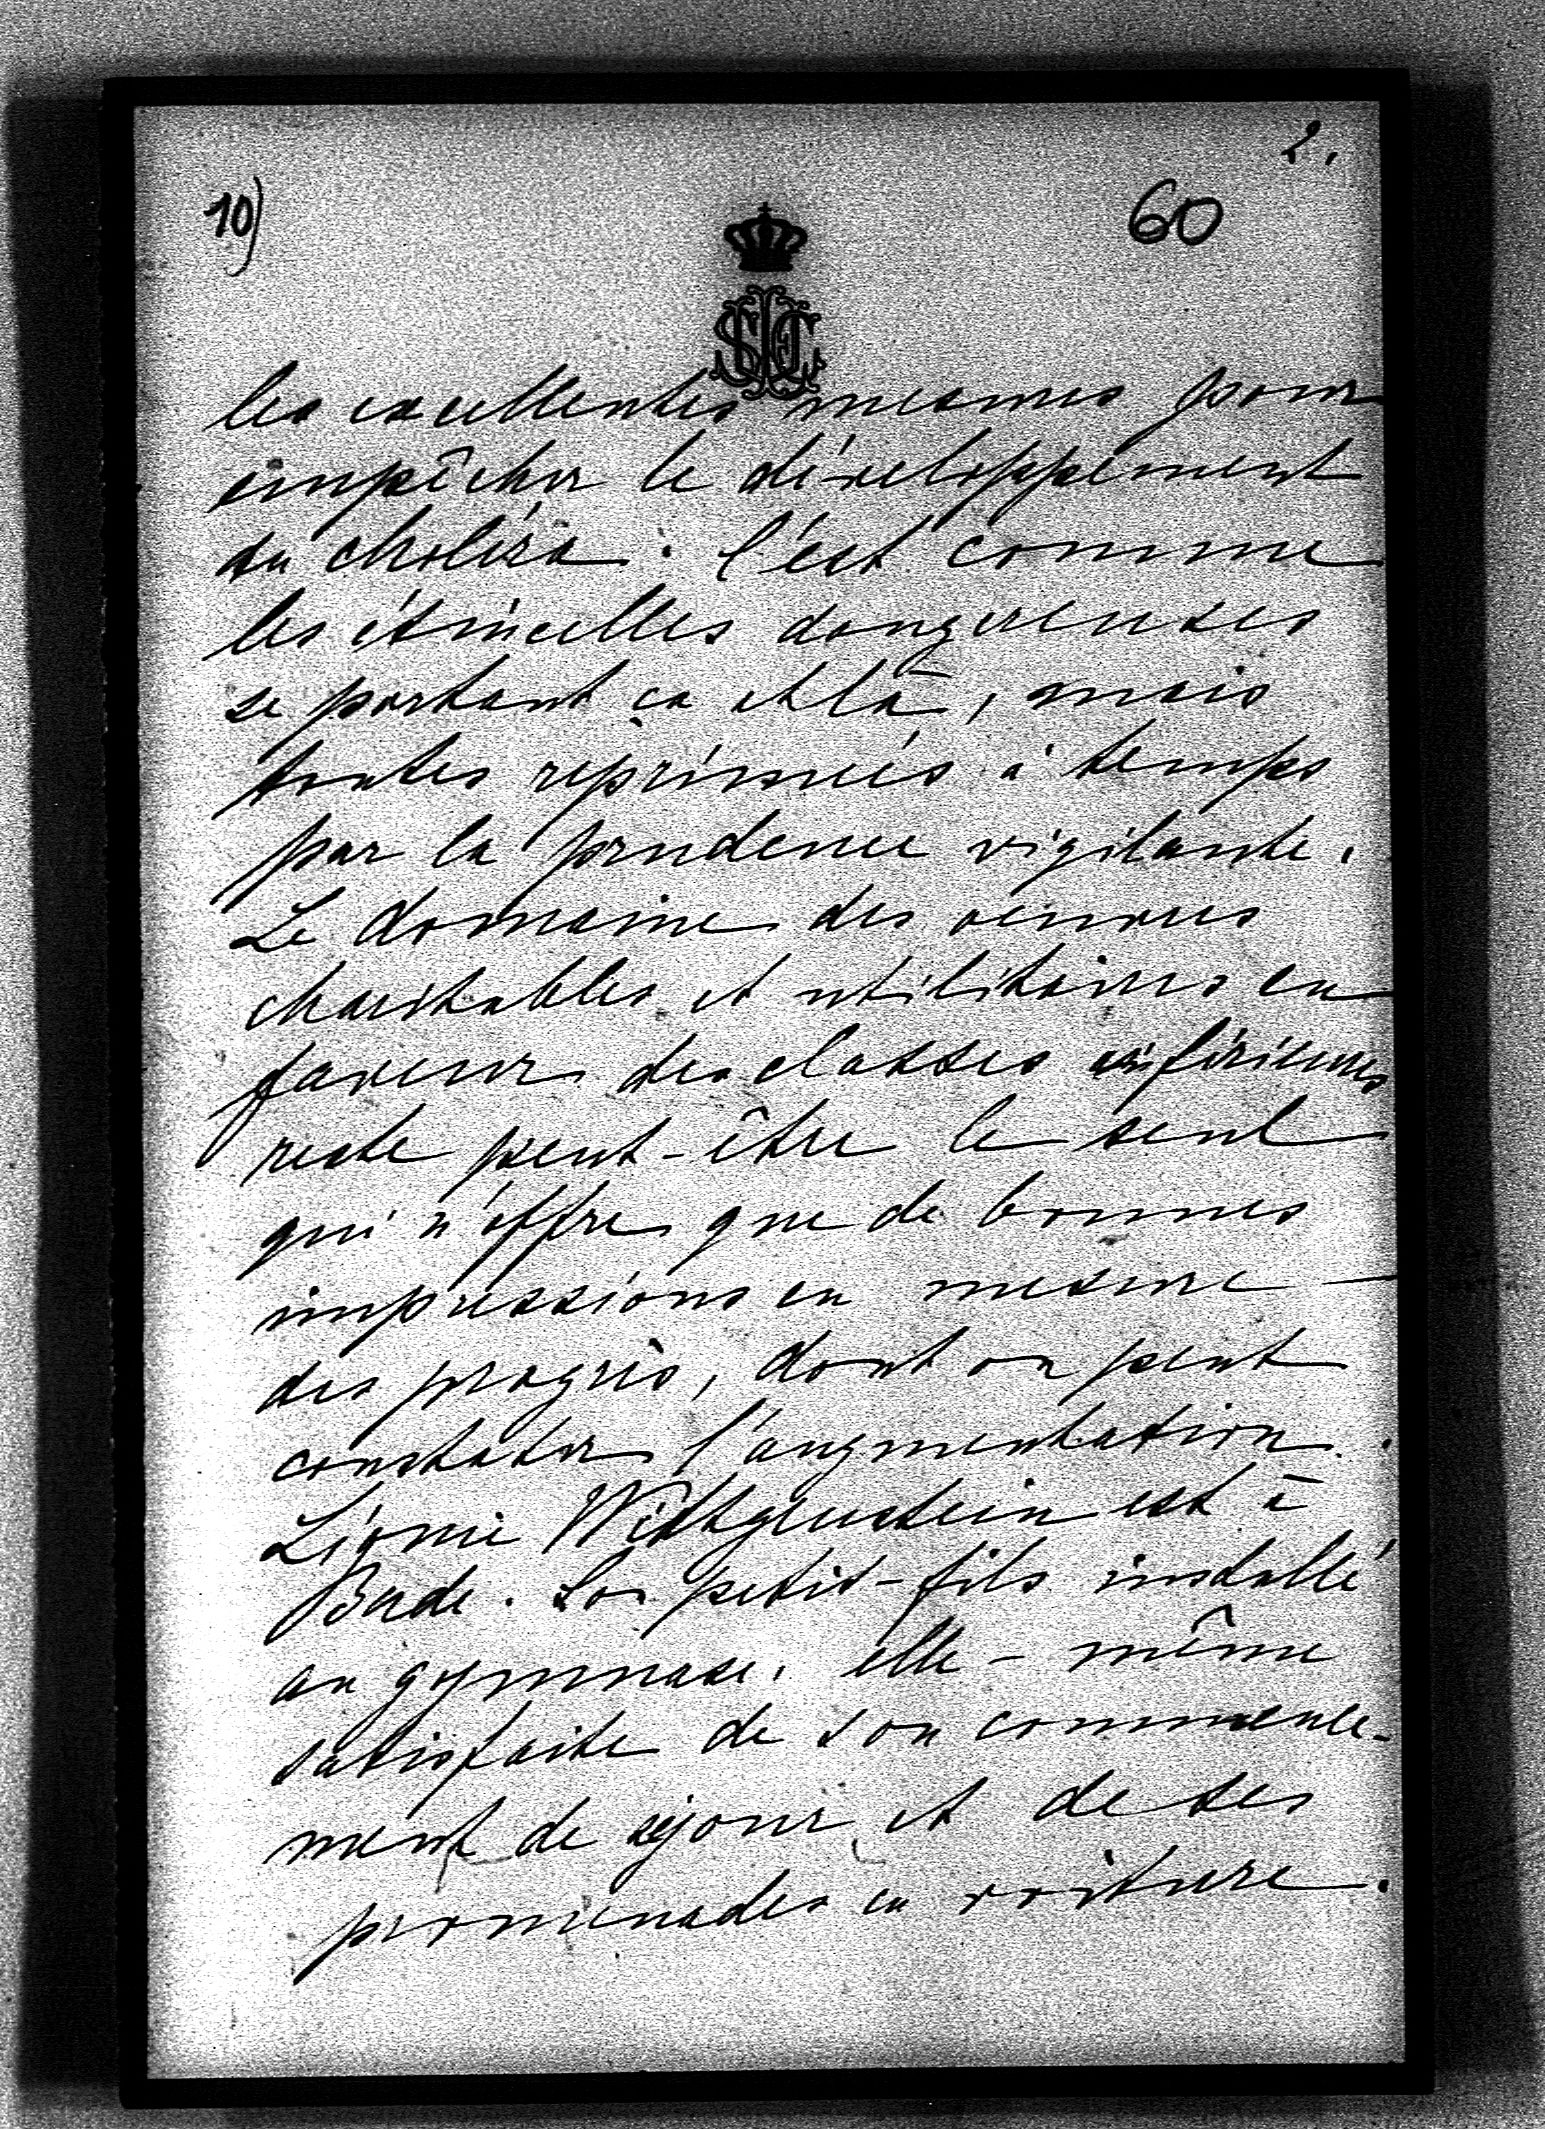 2.
10)
60
les excellentes mesures pour
empêcher le développement
du choléra. C'est comme
les étincelles dangereuses
se portant ca et là, mais
toutes réprimées à temps
par la prudence vigilante.
Le domaine des oeuvres
charitables et utilitaires en
faveur des classes inférieures
reste peut-être le seul
qui n'offre que de bonnes
impressions en mesure
des progrès, dont on peut
constater l'augmentation.
Léonie Wittgenstein est à
Bade. Son petit-fils installé
au gymnase. elle-même
satisfaite de son commence-
ment de séjour et de ses
promenades en voiture.